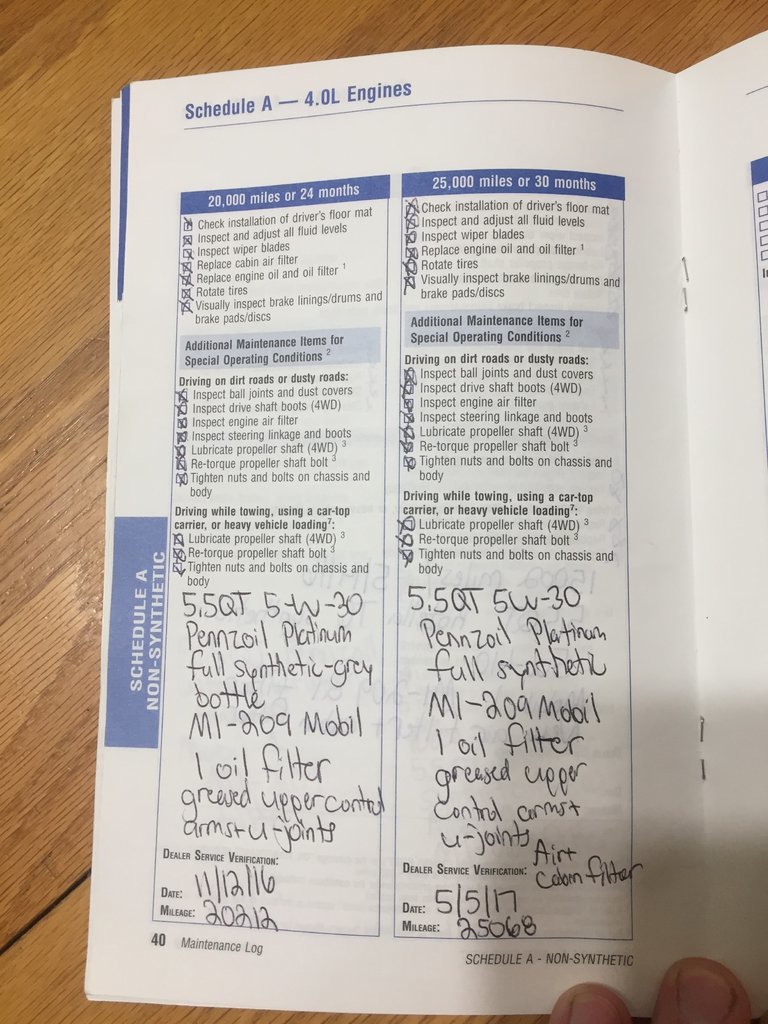 Schedule A — 4.0L Engines
20,000 miles or 24 months
Check installation of driver's floor mat
Inspect and adjust all fluid levels
Inspect wiper blades
Replace cabin air filter
Replace engine oil and oil filter 1
Rotate tires
Visually inspect brake linings/drums and
brake pads/discs
Additional Maintenance Items for
Special Operating Conditions 2
Driving on dirt roads or dusty roads:
Inspect ball joints and dust covers
Inspect drive shaft boots (4WD)
Inspect engine air filter
Inspect steering linkage and boots
Lubricate propeller shaft (4WD) 3
Re-torque propeller shaft bolt 3
Tighten nuts and bolts on chassis and
body
Driving while towing, using a car-top
carrier, or heavy vehicle loading7:
Lubricate propeller shaft (4WD) 3
Re-torque propeller shaft bolt 3
Tighten nuts and bolts on chassis and
body
5.5QT 5-W-30
Pennzoil Platinum
full synthetic-grey
bottle
M1-209 Mobil
1 oil filter
greased upper control
arms + u-joints
DEALER SERVICE VERIFICATION:
DATE: 11/12/16
MILEAGE: 20212
25,000 miles or 30 months
Check installation of driver's floor mat
Inspect and adjust all fluid levels
Inspect wiper blades
Replace engine oil and oil filter 1
Rotate tires
Visually inspect brake linings/drums and
brake pads/discs
Additional Maintenance Items for
Special Operating Conditions 2
Driving on dirt roads or dusty roads:
Inspect ball joints and dust covers
Inspect drive shaft boots (4WD)
Inspect engine air filter
Inspect steering linkage and boots
Lubricate propeller shaft (4WD) 3
Re-torque propeller shaft bolt 3
Tighten nuts and bolts on chassis and
body
Driving while towing, using a car-top
carrier, or heavy vehicle loading7:
Lubricate propeller shaft (4WD) 3
Re-torque propeller shaft bolt 3
Tighten nuts and bolts on chassis and
body
5.5QT 5W-30
Pennzoil Platinum
full synthetic
M1-209 Mobil
1 oil filter
greased upper
control arms +
u-joints
Air +
cabin filter
DEALER SERVICE VERIFICATION:
DATE: 5/5/17
MILEAGE: 25068
SCHEDULE A
NON-SYNTHETIC
40 Maintenance Log
SCHEDULE A - NON-SYNTHETIC